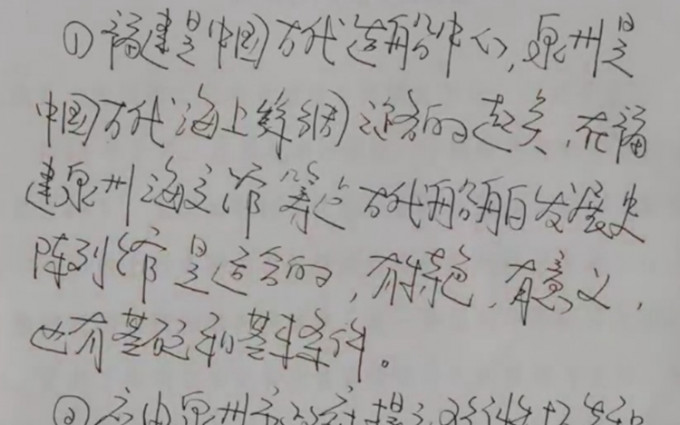 ①福建是中国古代造船中心,泉州是
中国古代海上丝绸之路的起点,在福
建泉州海交馆筹建古代船舶发展史
陈列馆是适合的,有特色,有意义,
也有基础和基本条件。
②应由泉州市政府提